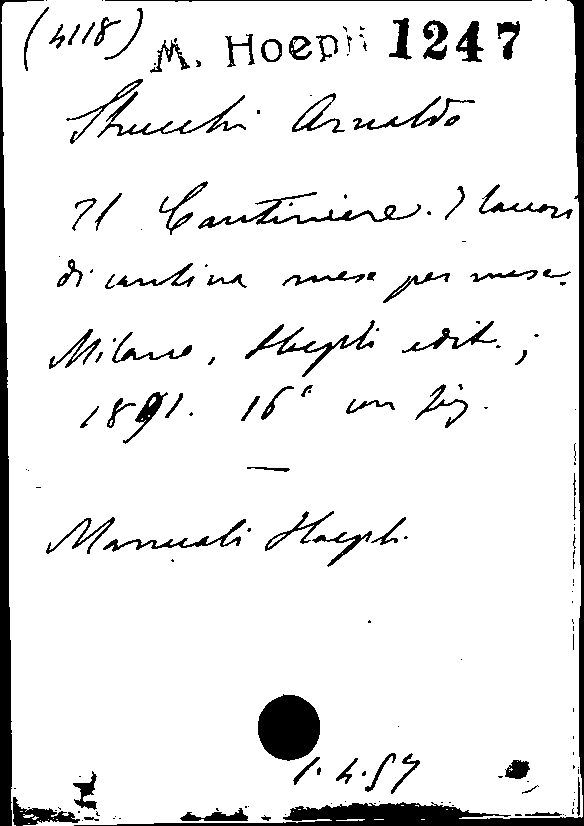 (4118) M. Hoepli 1247
Strucchi Arnaldo
Il Cantiniere. I lavori
di cantina mese per mese.
Milano, Hoepli edit.;
1891. 16° con fig.
Manuali Hoepli.
1.4.57